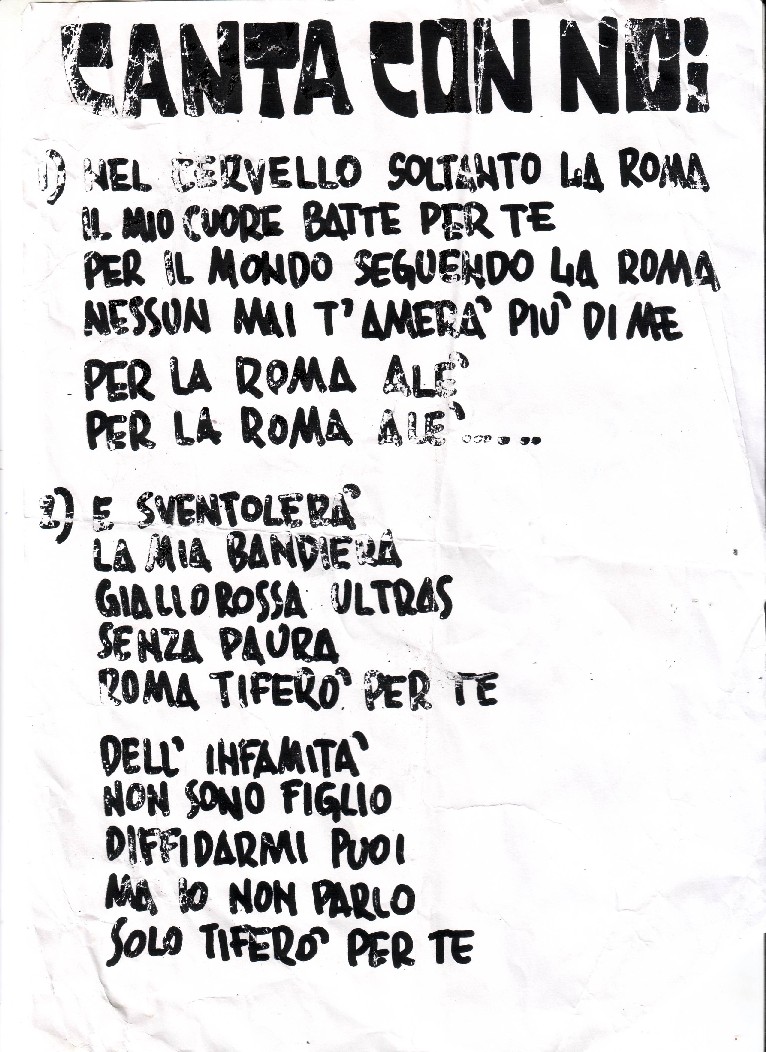 CANTA CON NOi
1) NEL CERVELLO SOLTANTO LA ROMA
IL MIO CUORE BATTE PER TE
PER IL MONDO SEGUENDO LA ROMA
NESSUN MAI T'AMERA' PIU' DI ME
PER LA ROMA ALE'
PER LA ROMA ALE'......
2) E SVENTOLERA'
LA MIA BANDIERA
GIALLOROSSA ULTRAS
SENZA PAURA
ROMA TIFERO' PER TE
DELL' INFAMITA'
NON SONO FIGLIO
DIFFIDARMI PUOI
MA IO NON PARLO
SOLO TIFERO' PER TE